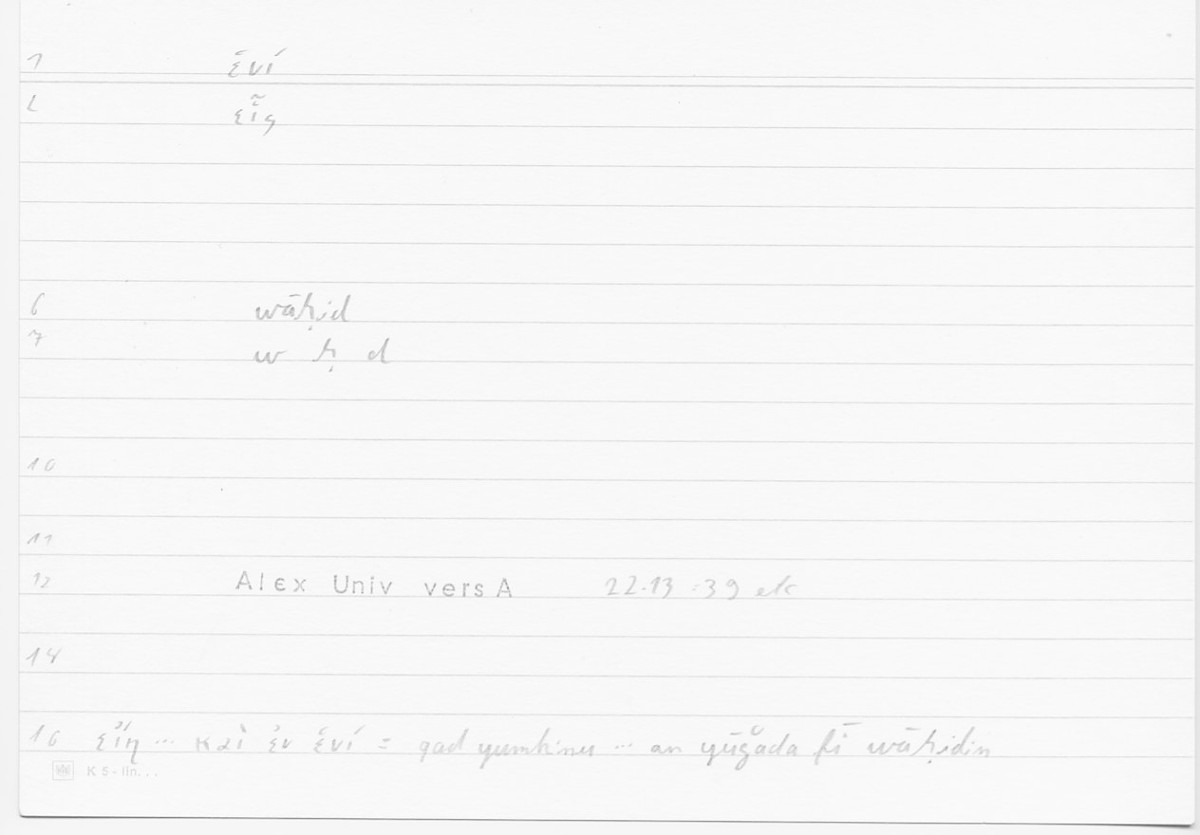 1 ἑνί
2 εἷς
6 wāḥid
7 w ḥ d
10
11
12 Alex Univ vers A 22.13 :39
14
16 εἴη ... καὶ ἐν ἑνί = qad yumkinu ... an yūǧada fī wāḥidin
K 5 - lin...